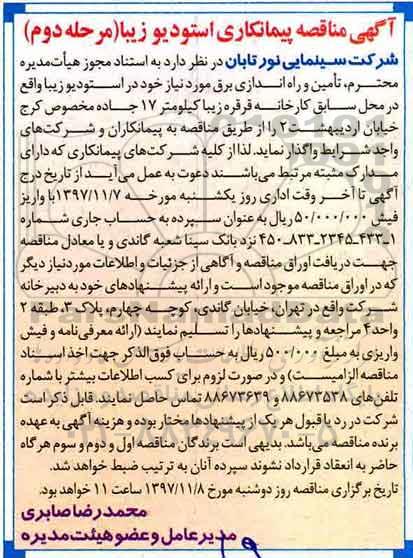 آگهی مناقصه پیمانکاری استودیو زیبا(مرحله دوم)
شرکت سینمایی نور تابان در نظر دارد به استناد مجوز هیأت‌مدیره
محترم، تأمین و راه اندازی برق مورد نیاز خود در استودیو زیبا واقع
در محل سابق کارخانه قرقره زیبا کیلومتر ۱۷ جاده مخصوص کرج
خیابان اردیبهشت ۲ را از طریق مناقصه به پیمانکاران و شرکت‌های
واحد شرایط واگذار نماید. لذا از کلیه شرکت‌های پیمانکاری که دارای
مدارک مثبته مرتبط می‌باشند دعوت به عمل می‌آید از تاریخ درج
آگهی تا آخر وقت اداری روز یکشنبه مورخه ۱۳۹۷/۱۱/۷ با واریز
فیش ۵۰/۰۰۰/۰۰۰ ریال به عنوان سپرده به حساب جاری شماره
۱-۴۳۳-۲۳۴۵-۸۳۳-۴۵۰ نزد بانک سینا شعبه گاندی و یا معادل مناقصه
جهت دریافت اوراق مناقصه و آگاهی از جزئیات و اطلاعات مورد نیاز دیگر
که در اوراق مناقصه موجود است و ارائه پیشنهادهای خود به دبیرخانه
شرکت واقع در تهران، خیابان گاندی، کوچه چهارم، پلاک ۳، طبقه ۲
واحد ۴ مراجعه و پیشنهادها را تسلیم نمایند (ارائه معرفی‌نامه و فیش
واریزی به مبلغ ۵۰۰/۰۰۰ ریال به حساب فوق الذکر جهت اخذ اسناد
مناقصه الزامیست) و در صورت لزوم برای کسب اطلاعات بیشتر با شماره
تلفن‌های ۸۸۶۷۳۵۳۸ و ۸۸۶۷۳۶۳۹ تماس حاصل نمایند. قابل ذکر است
شرکت در رد یا قبول هر یک از پیشنهادها مختار بوده و هزینه آگهی به عهده
برنده مناقصه می‌باشد. بدیهی است برندگان مناقصه اول و دوم و سوم هرگاه
حاضر به انعقاد قرارداد نشوند سپرده آنان به ترتیب ضبط خواهد شد.
تاریخ برگزاری مناقصه روز دوشنبه مورخ ۱۳۹۷/۱۱/۸ ساعت ۱۱ خواهد بود.
محمدرضا صابری
مدیرعامل و عضو هیئت مدیره